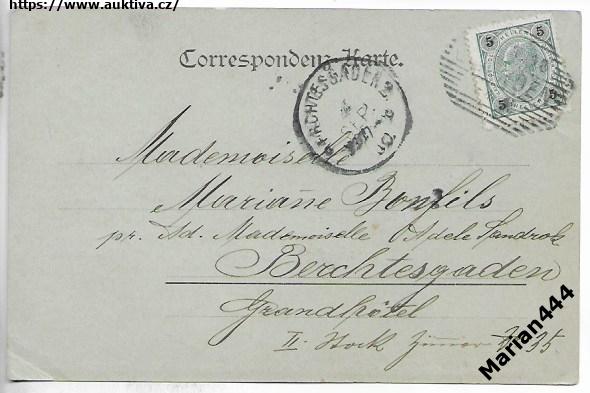 https://www.auktiva.cz/
Correspondenz-Karte.
5 5
5 5
BERCHTESGADEN 2
Mademoiselle
Mariañe Bonfils
pr. Ad. Mademoiselle Adele Sandrok
Berchtesgaden
Grandhôtel
II. Stock Zimmer 35
Marian444